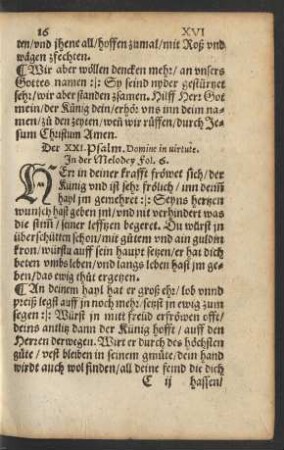 16 XVI
ten/vnd jhene all/hoffen zumal/mit Roß vnd
wägen zfechten.
¶ Wir aber wöllen dencken mehr/an vnsers
Gottes namen :|: Sy seind nyder gestürtzet
sehr/wir aber standen zsamen. Hilff Herr Got
mein/der Künig dein/erhör vns inn dein na-
men/zů den zeyten/weñ wir rüffen/durch Je-
sum Christum Amen.
Der XXI. Psalm. Domine in uirtute.
In der Melodey Fol. 6.
HEr in deiner krafft fröwet sich/der
Künig vnd ist sehr frölich/inn deinẽ
hayl jm gemehret :|: Seyns hertzen
wunsch hast geben jm/vnd nit verhindert was
die stiñ/seiner lefftzen begeret. Du würst jn
überschütten schon/mit gůtem vnd ain guldin
kron/würstu auff sein haupt setzen/er hat dich
beten vmbs leben/vnd langs leben hast jm ge-
ben/das ewig thůt ergeyen.
¶ An deinem hayl hat er groß ehr/lob vnnd
preiß legst auff jn noch mehr/setzst jn ewig zum
segen :|: Würst jn mitt freüd erfröwen offt/
deins antlitz dann der Künig hofft/auff den
Herren derwegen. Wirt er durch des höchsten
güte/vest bleiben in seinem gmüte/dein hand
wirdt auch wol finden/all deine feind die dich
C ij hassen/